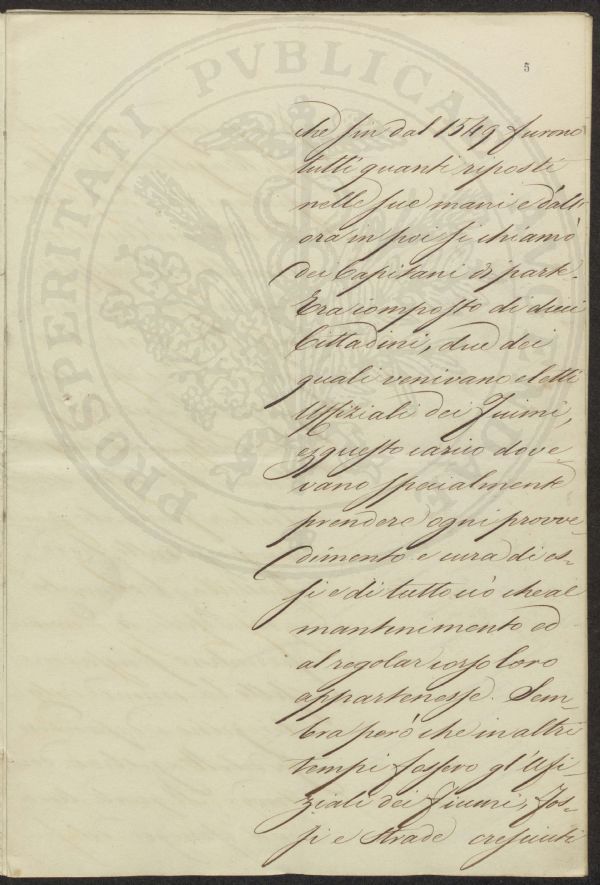 5
che fin dal 1549 furono
tutti quanti riposti
nelle sue mani e d'all'
ora in poi si chiamò
dei Capitani di parte.
Era composto di dieci
Cittadini, due dei
quali venivano eletti
Uffiziali dei Fiumi,
e questo carico dove-
vano specialmente
prendere ogni provve-
dimento e cura di es-
si e di tutto ciò che al
mantinimento ed
al regolar corso loro
appartenesse. Sem-
bra però che in altri
tempi fossero gl'Uffi-
ziali dei Fiumi, Fos-
si e Strade cresciuti
PROSPERITATI PVBLICAE